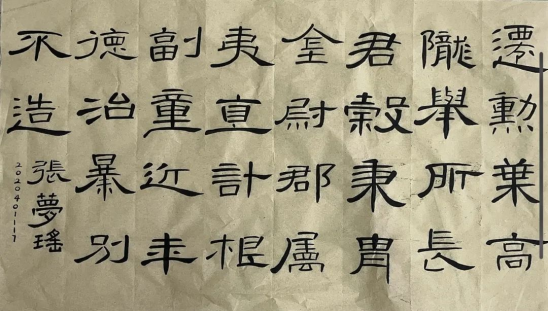 遷勳葉高
隴舉所長
君穀秉胄
金尉郡属
夷直計根
副童近来
德治暴别
不造
張夢瑤
2020401117